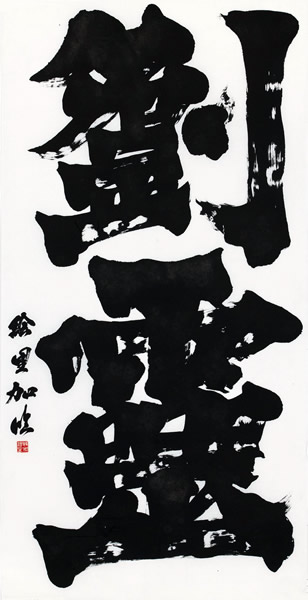 劉靈
絵里加